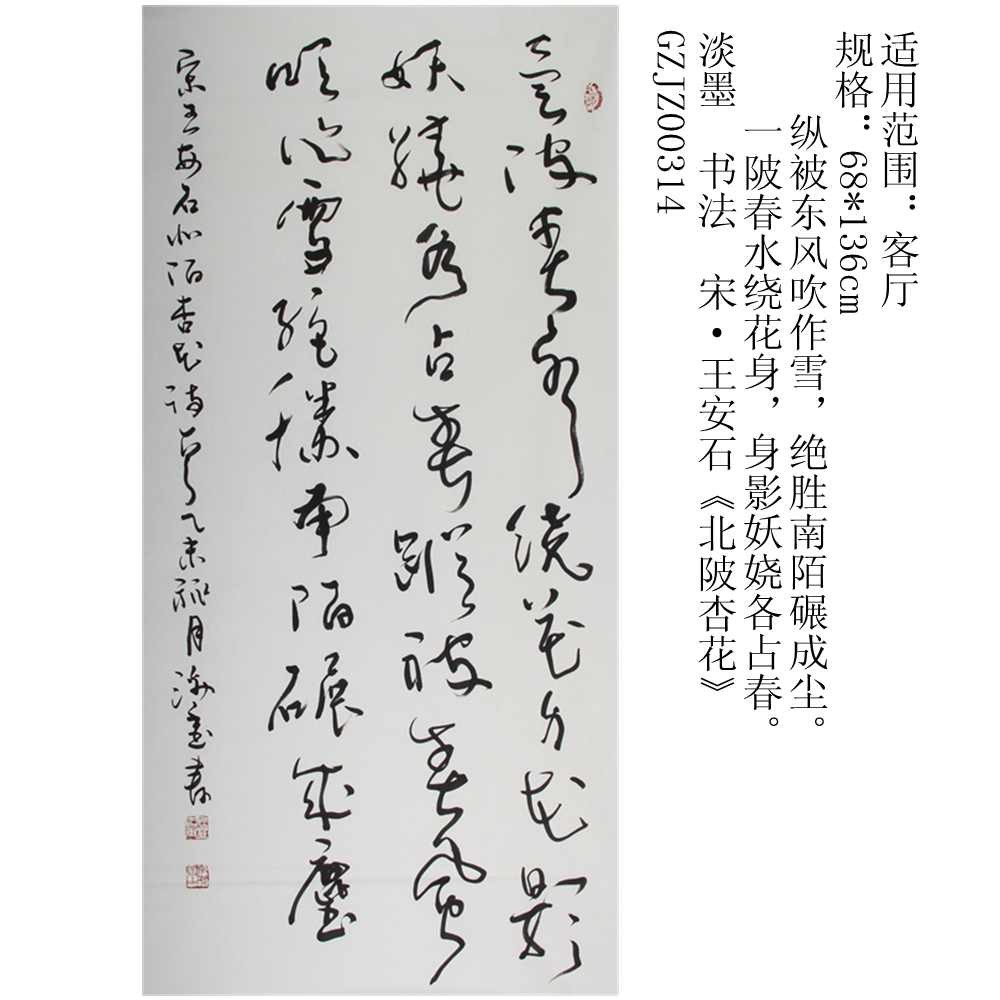 壹陂春水繞花身花影
妖嬈各占春縱被春風
吹作雪絕勝南陌碾成塵
宋王安石北陌杏花詩一首乙未
GZJZ00314
淡墨　书法　宋·王安石《北陂杏花》
一陂春水绕花身，身影妖娆各占春。
纵被东风吹作雪，绝胜南陌碾成尘。
规格：68*136cm
适用范围：客厅